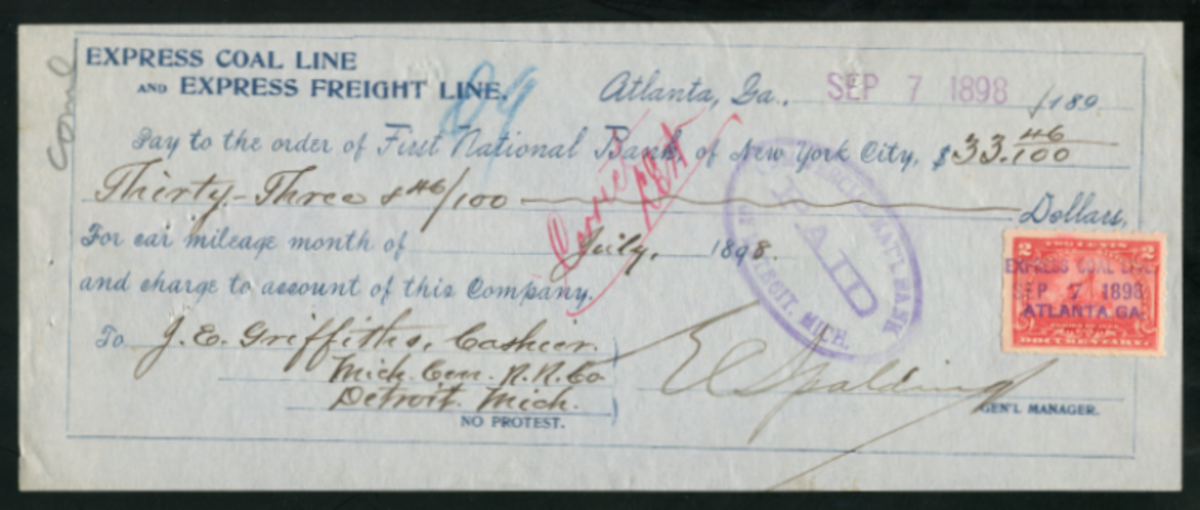 EXPRESS COAL LINE
AND EXPRESS FREIGHT LINE.
Atlanta, Ga., SEP 7 1898 189
Pay to the order of First National Bank of New York City, $33.46/100
Thirty-Three & 46/100 Dollars,
For car mileage month of July, 1898.
and charge to account of this Company.
To J. E. Griffiths, Cashier.
Mich. Cen. R. R. Co
Detroit. Mich.
NO PROTEST.
E C Spalding
GEN'L MANAGER.
Correct
PAID
DETROIT, MICH.
2 TWO CENTS 2
EXPRESS COAL LINE
SEP 7 1898
ATLANTA, GA.
DOCUMENTARY